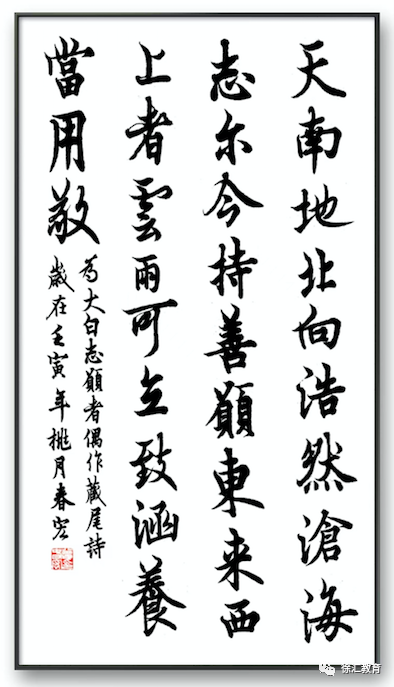 天南地北向浩然滄海
志尔今持善願東来西
上者雲雨可立致涵養
當用敬
為大白志願者偶作藏尾詩
歲在壬寅年桃月春
徐汇教育